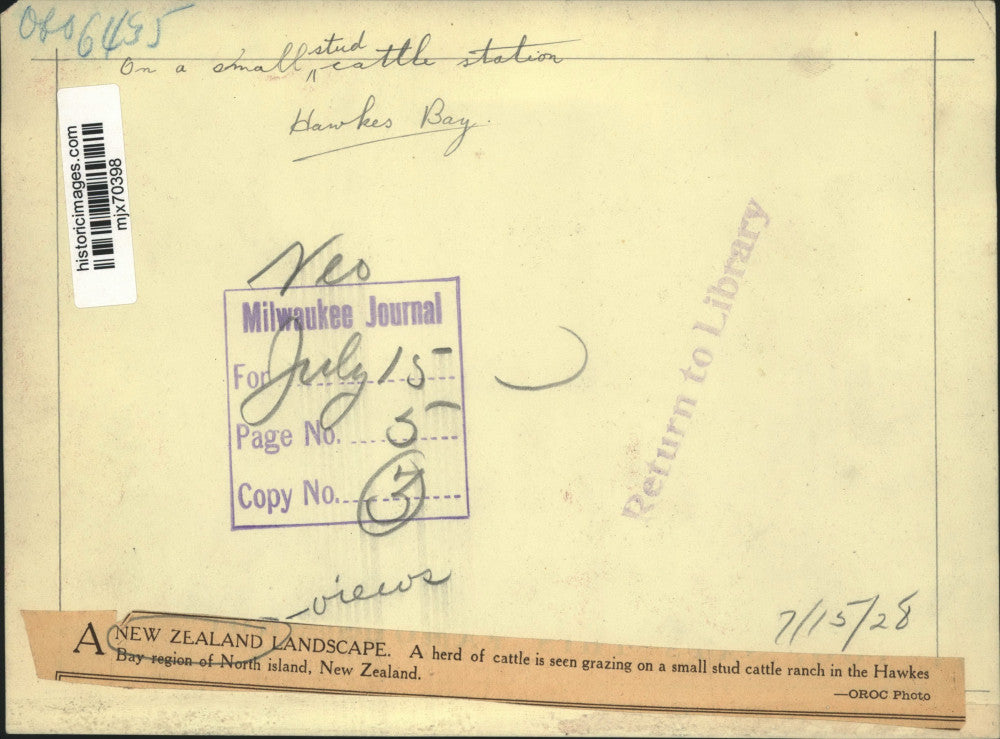 On a small stud cattle station
Hawkes Bay.
historicimages.com
mjx70398
Milwaukee Journal
For July 15
Page No. 5
Copy No. 3
Return to Library
-views
7/15/28
A NEW ZEALAND LANDSCAPE. A herd of cattle is seen grazing on a small stud cattle ranch in the Hawkes
Bay region of North island, New Zealand.
—OROC Photo